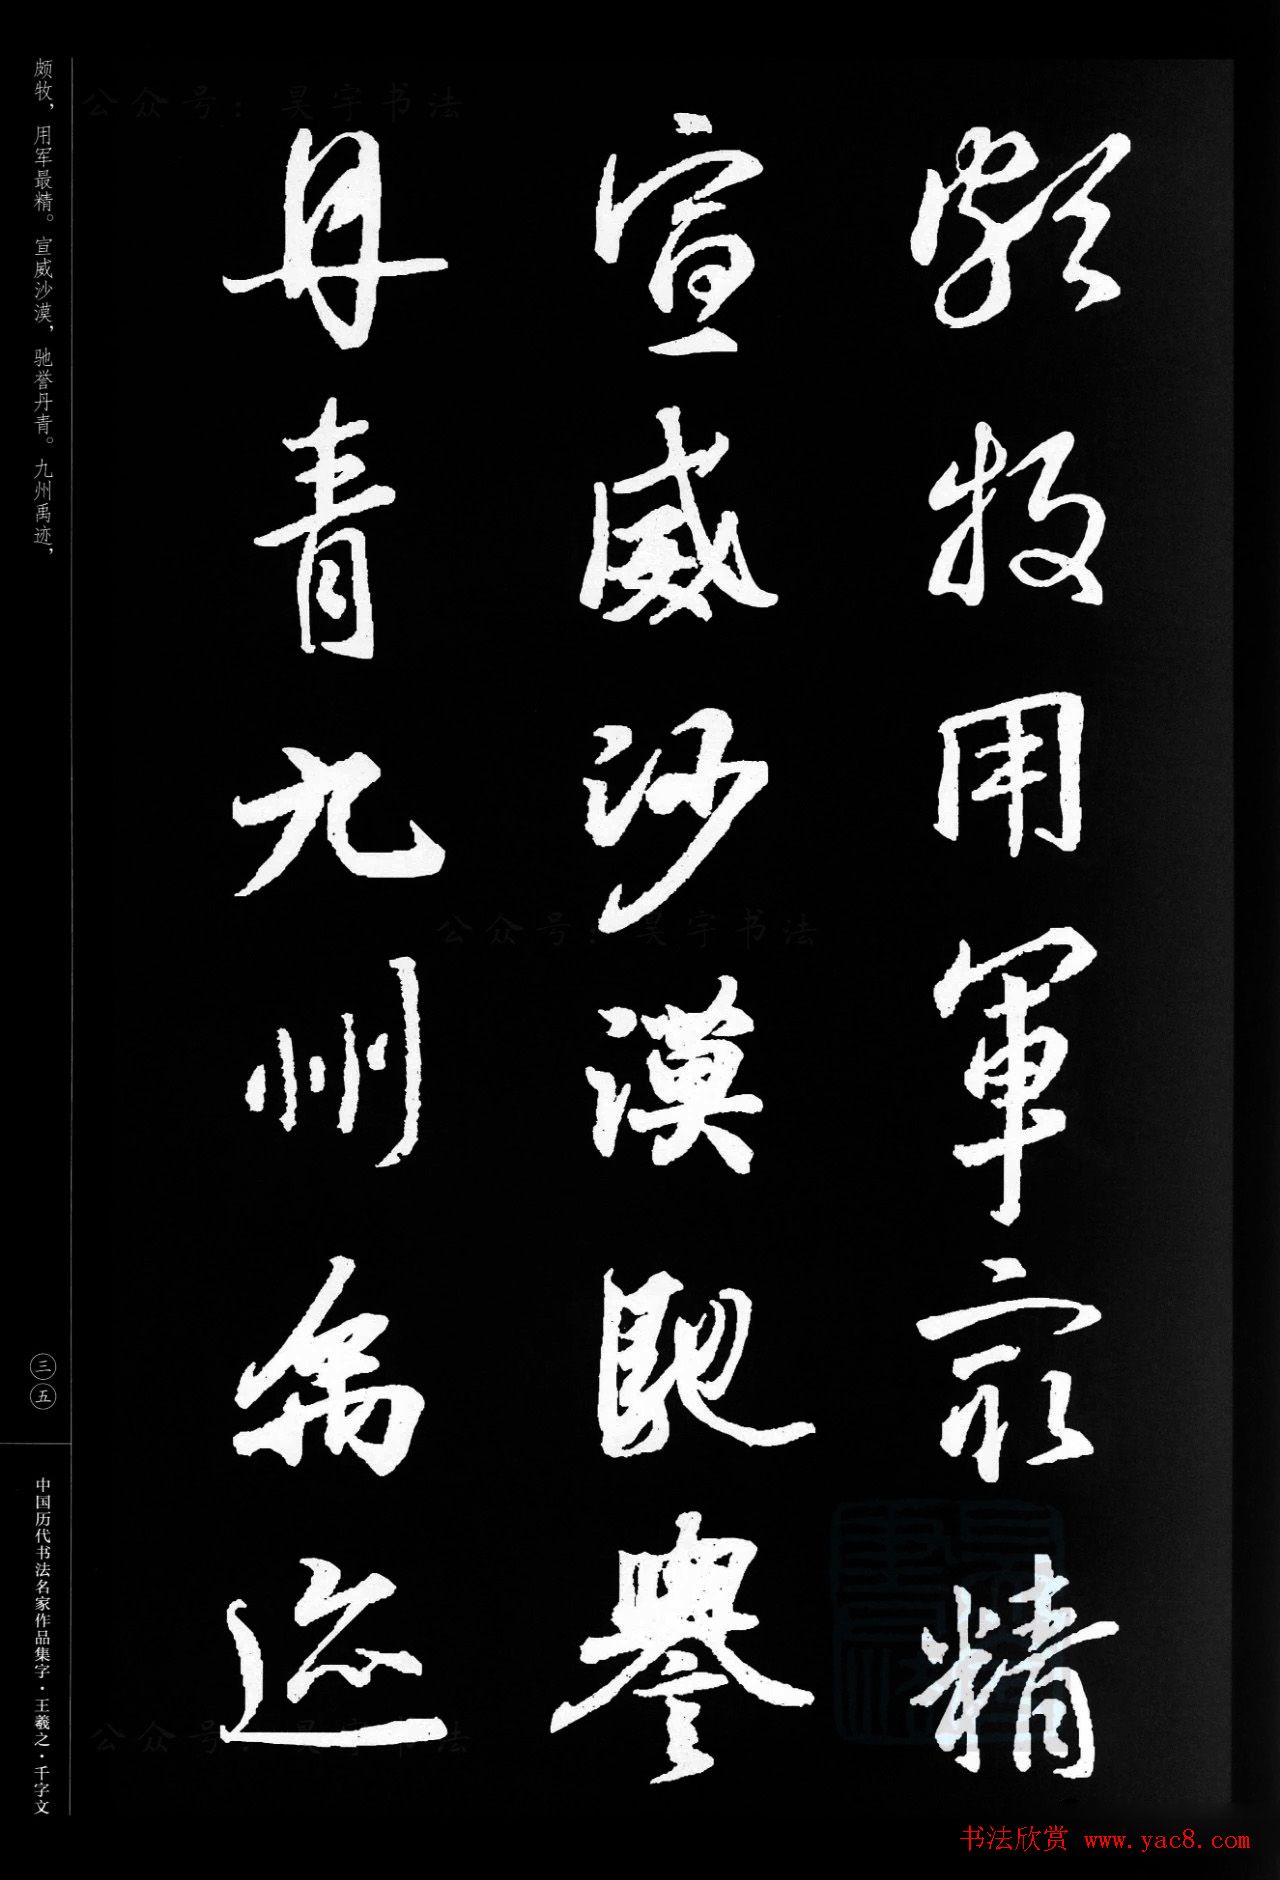 頗牧用軍最精
宣威沙漠馳譽
丹青九州禹迹
颇牧，用军最精。宣威沙漠，驰誉丹青。九州禹迹，
三五
中国历代书法名家作品集字·王羲之·千字文
公众号：昊宇书法
公众号：昊宇书法
公众号：昊宇书法
书法欣赏 www.yac8.com